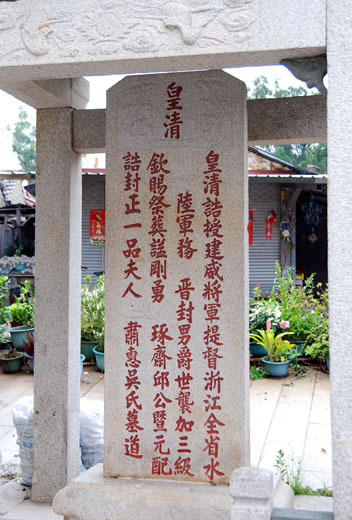 皇清
皇清誥授建威將軍提督浙江全省水
陸軍務 晉封男爵世襲加三級
欽賜祭葬諡剛勇 琢齋邱公暨元配
誥封正一品夫人 肅惠吳氏墓道